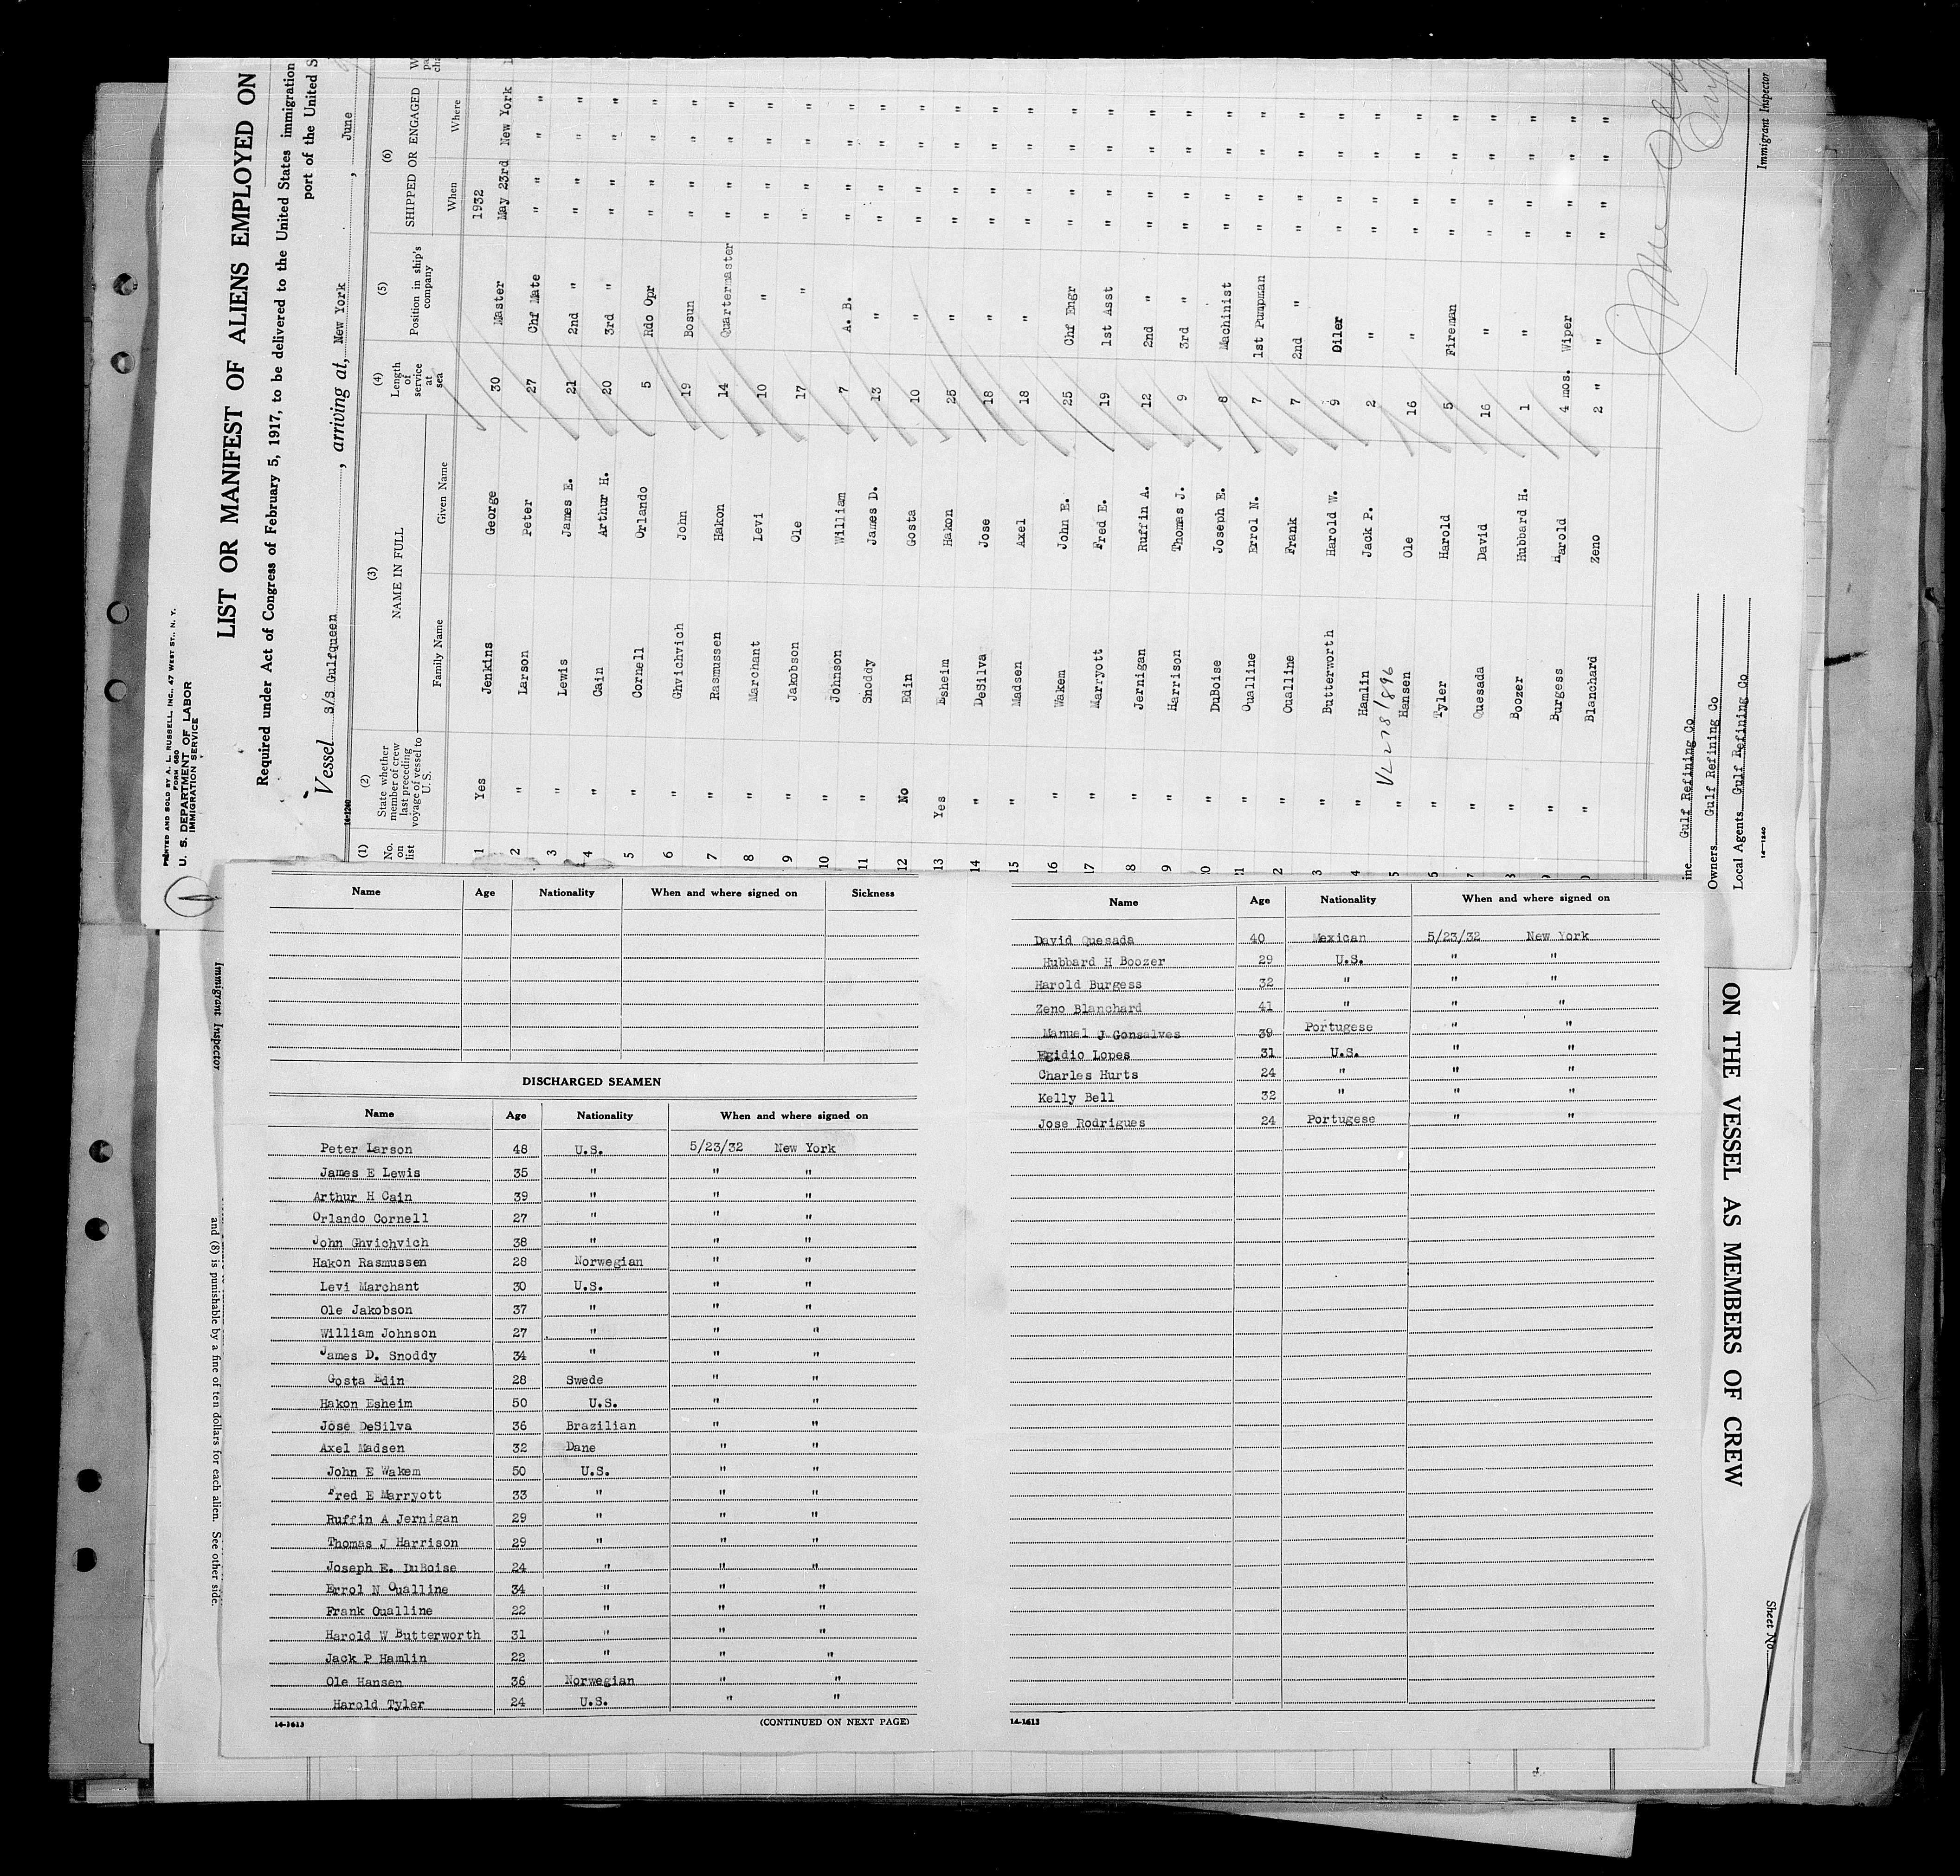 PRINTED AND SOLD BY A. L. RUSSELL, INC., 47 WEST ST., N. Y.
FORM 680
U. S. DEPARTMENT OF LABOR
IMMIGRATION SERVICE
LIST OR MANIFEST OF ALIENS EMPLOYED ON
Required under Act of Congress of February 5, 1917, to be delivered to the United States immigration
port of the United S
Vessel S/S Gulfqueen, arriving at, New York, June
14-1240
(1) (2) (3) (4) (5) (6)
No. on list State whether member of crew last preceding voyage of vessel to U.S. NAME IN FULL Length of service at sea Position in ship's company SHIPPED OR ENGAGED
Family Name Given Name When Where
1932
1 Yes Jenkins George 30 Master May 23rd New York
2 " Larson Peter 27 Chf Mate " " " "
3 " Lewis James E. 21 2nd " " " " "
4 " Cain Arthur H. 20 3rd " " " " "
5 " Cornell Orlando 5 Rdo Opr " " " "
6 " Ghvichvich John 19 Bosun " " " "
7 " Rasmussen Hakon 14 Quartermaster " " " "
8 " Marchant Levi 10 " " " " "
9 " Jakobson Ole 17 " " " " "
10 " Johnson William 7 A. B. " " " "
11 " Snoddy James D. 13 " " " " "
12 No Edin Gosta 10 " " " " "
13 Yes Esheim Hakon 25 " " " " "
14 " DeSilva Jose 18 " " " " "
15 " Madsen Axel 18 " " " " "
16 " Wakem John E. 25 Chf Engr " " " "
17 " Marryott Fred E. 19 1st Asst " " " "
8 " Jernigan Ruffin A. 12 2nd " " " " "
9 " Harrison Thomas J. 9 3rd " " " " "
0 " DuBoise Joseph E. 8 Machinist " " " "
1 " Oualline Errol N. 7 1st Pumpman " " " "
2 " Oualline Frank 7 2nd " " " " "
3 " Butterworth Harold W. 9 Oiler " " " "
4 " Hamlin Jack P. 2 " " " " "
VL 278/896
5 " Hansen Ole 16 " " " " "
6 " Tyler Harold 5 Fireman " " " "
7 " Quesada David 16 " " " " "
8 " Boozer Hubbard H. 1 " " " " "
9 " Burgess Harold 4 mos. Wiper " " " "
0 " Blanchard Zeno 2 " " " " " "
ine Gulf Refining Co
Owners Gulf Refining Co
Local Agents Gulf Refining Co
14-1240
Immigrant Inspector
Immigrant Inspector
and (8) is punishable by a fine of ten dollars for each alien. See other side.
Name Age Nationality When and where signed on Sickness
DISCHARGED SEAMEN
Name Age Nationality When and where signed on
Peter Larson 48 U.S. 5/23/32 New York
James E Lewis 35 " " "
Arthur H Cain 39 " " "
Orlando Cornell 27 " " "
John Ghvichvich 38 " " "
Hakon Rasmussen 28 Norwegian " "
Levi Marchant 30 U.S. " "
Ole Jakobson 37 " " "
William Johnson 27 " " "
James D. Snoddy 34 " " "
Gosta Edin 28 Swede " "
Hakon Esheim 50 U.S. " "
Jose DeSilva 36 Brazilian " "
Axel Madsen 32 Dane " "
John E Wakem 50 U.S. " "
Fred E Marryott 33 " " "
Ruffin A Jernigan 29 " " "
Thomas J Harrison 29 " " "
Joseph E. DuBoise 24 " " "
Errol N Oualline 34 " " "
Frank Oualline 22 " " "
Harold W Butterworth 31 " " "
Jack P Hamlin 22 " " "
Ole Hansen 36 Norwegian " "
Harold Tyler 24 U.S. " "
14-1613 (CONTINUED ON NEXT PAGE)
Name Age Nationality When and where signed on
David Quesada 40 Mexican 5/23/32 New York
Hubbard H Boozer 29 U.S. " "
Harold Burgess 32 " " "
Zeno Blanchard 41 " " "
Manuel J Gonsalves 39 Portugese " "
Egidio Lopes 31 U.S. " "
Charles Hurts 24 " " "
Kelly Bell 32 " " "
Jose Rodrigues 24 Portugese " "
14-1613
ON THE VESSEL AS MEMBERS OF CREW
Sheet No.